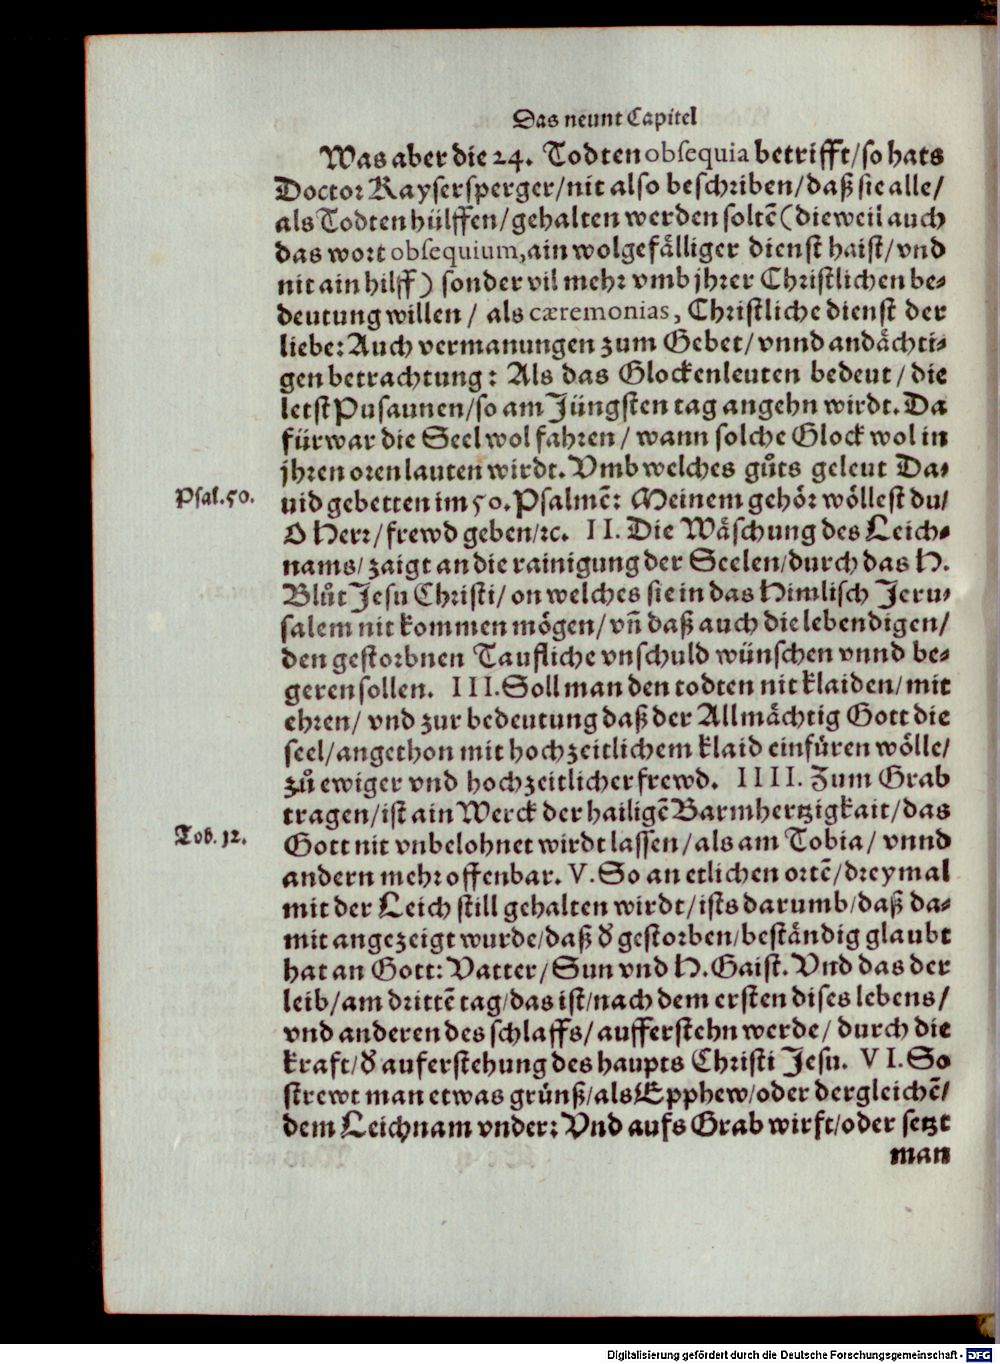 Das neunt Capitel
Was aber die 24. Todten obsequia betrifft/so hats
Doctor Kaysersperger/nit also beschriben/daß sie alle/
als Todten hülffen/gehalten werden soltẽ (dieweil auch
das wort obsequium, ain wolgefälliger dienst haist/vnd
nit ain hilff) sonder vil mehr vmb jhrer Christlichen be-
deutung willen/ als cæremonias, Christliche dienst der
liebe: Auch vermanungen zum Gebet/ vnnd andächti-
gen betrachtung: Als das Glockenleuten bedeut/ die
letst Pusaunen/so am Jüngsten tag angehn wirdt. Da
fürwar die Seel wol fahren/ wann solche Glock wol in
jhren oren lauten wirdt. Vmb welches gůts geleut Da-
Psal. 50. uid gebetten im 50. Psalmẽ: Meinem gehör wöllest du/
O Herr/frewd geben/ꝛc. II. Die Wäschung des Leich-
nams/ zaigt an die rainigung der Seelen/durch das H.
Blůt Jesu Christi/ on welches sie in das Himlisch Jeru-
salem nit kommen mögen/ vñ daß auch die lebendigen/
den gestorbnen Taufliche vnschuld wünschen vnnd be-
geren sollen. III. Soll man den todten nit klaiden/ mit
ehren/ vnd zur bedeutung daß der Allmächtig Gott die
seel/angethon mit hochzeitlichem klaid einfüren wölle/
zů ewiger vnd hochzeitlicher frewd. IIII. Zum Grab
tragen/ist ain Werck der hailigẽ Barmhertzigkait/das
Tob. 12. Gott nit vnbelohnet wirdt lassen/als am Tobia/ vnnd
andern mehr offenbar. V. So an etlichen ortẽ/dreymal
mit der Leich still gehalten wirdt/ists darumb/daß da-
mit angezeigt wurde/daß d' gestorben/beständig glaubt
hat an Gott: Vatter/ Sun vnd H. Gaist. Vnd das der
leib/am drittẽ tag/das ist/nach dem ersten dises lebens/
vnd anderen des schlaffs/ aufferstehn werde/ durch die
kraft/d' auferstehung des haupts Christi Jesu. VI. So
strewt man etwas grünß/als Epphew/oder dergleichẽ/
dem Leichnam vnder: Vnd aufs Grab wirft/oder setzt
man
Digitalisierung gefördert durch die Deutsche Forschungsgemeinschaft - DFG